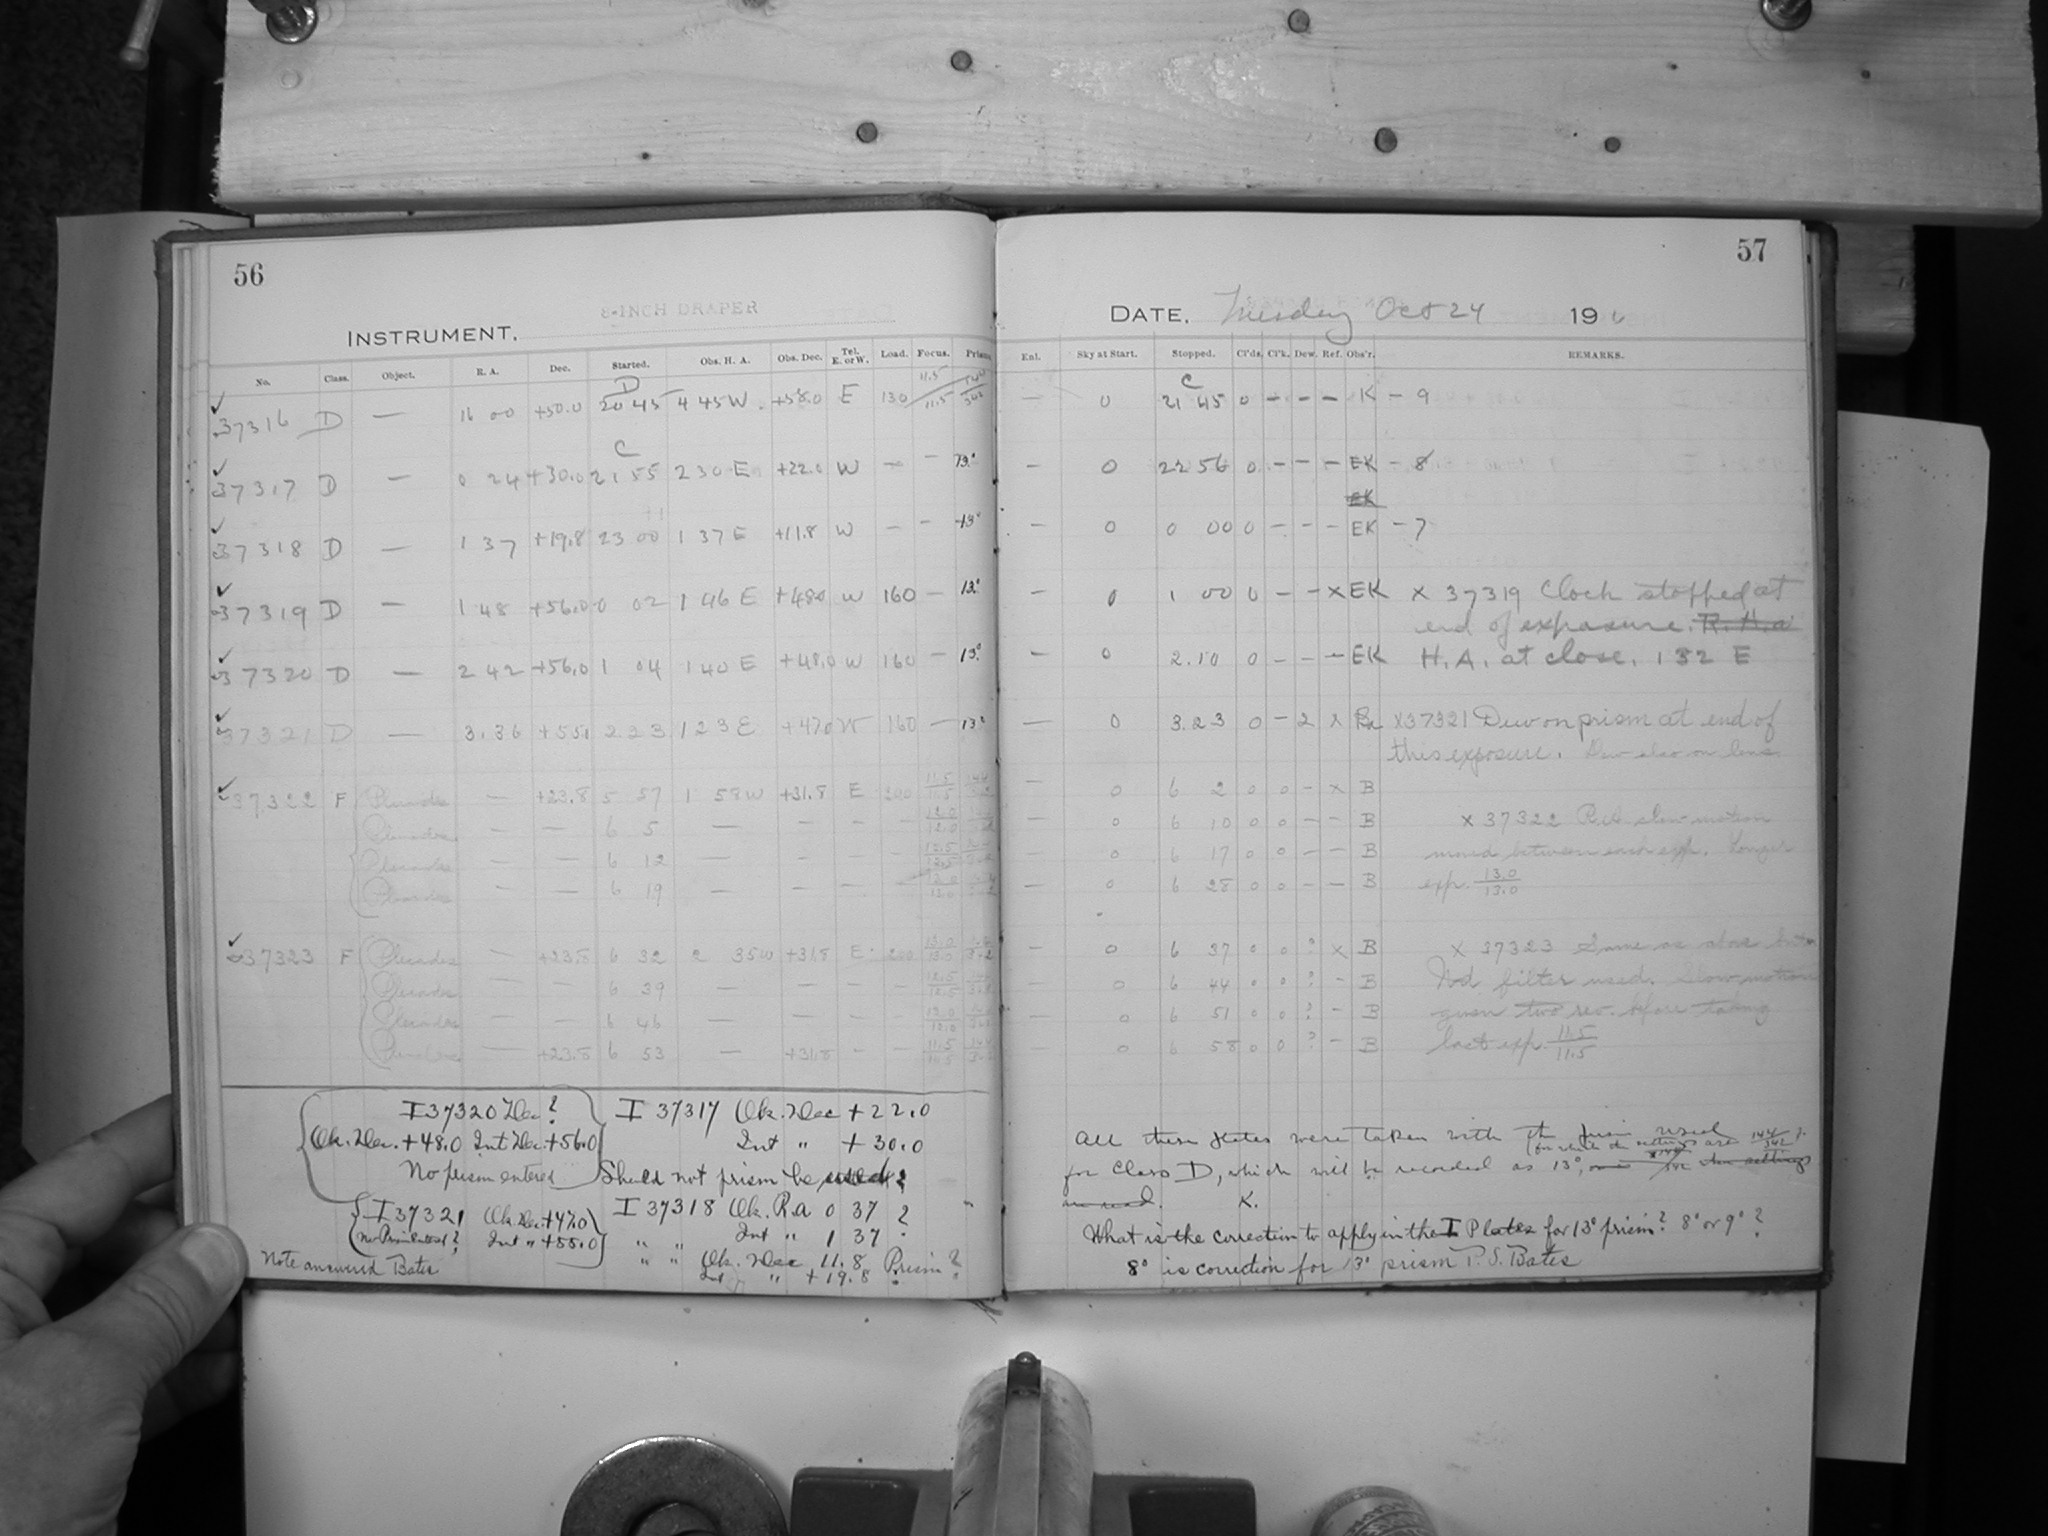 56
8-INCH DRAPER
INSTRUMENT.
No. Class. Object. R. A. Dec. Started. Obs. H. A. Obs. Dec. Tel. E. or W. Load. Focus. Prism
D 11.5
✓ 37316 D — 16 00 +50.0 20 45 4 45 W. +58.0 E 130 11.5
C
✓ 37317 D — 0 24 +30.0 21 55 2 30 E +22.0 W — — 13°
✓ 37318 D — 1 37 +19.8 23 00 1 37 E +11.8 W — — 13°
✓ 37319 D — 1 48 +56.0 0 02 1 46 E +48.0 W 160 — 13°
✓ 37320 D — 2 42 +56.0 1 04 1 40 E +48.0 W 160 — 13°
✓ 37321 D — 3.36 +55.0 2 23 1 23 E +47.0 W 160 — 13°
✓ 37322 F Pleiades — +23.8 5 57 1 59 W +31.8 E 200 11.5 11.5
Pleiades — — 6 5 — — — — 12.0 12.0
Pleiades — — 6 12 — — — — 12.5 12.5
Pleiades — — 6 19 — — — — 13.0
✓ 37323 F Pleiades — +23.8 6 32 2 35 W +31.8 E 200 13.0 13.0
Pleiades — — 6 39 — — — — 12.5 12.5
Pleiades — — 6 46 — — — — 12.0
Pleiades — +23.8 6 53 — +31.8 — — 11.5 11.5
I 37320 Dec?
Ob. Dec. +48.0 Int Dec. +56.0
No prism entered
I 37321 Ob. Dec. +47.0
No Prism Entered? Int " +55.0
Note answered Bates
I 37317 Ob. Dec +22.0
Int " +30.0
Should not prism be used?
I 37318 Ob. R.A 0 37 ?
" " Int " 1 37
" " Ob. Dec 11.8 Prism?
Int " +19.8
57
DATE. Tuesday Oct 24 19
Enl. Sky at Start. Stopped. Cl'ds. Cl'k. Dew. Ref. Obs'r. REMARKS.
C
— 0 21 45 0 — — — K — 9
— 0 22 56 0 — — — EK — 8
EK
— 0 0 00 0 — — — EK — 7
— 0 1 00 0 — — x EK x 37319 Clock stopped at
end of exposure. R. H. a
— 0 2.10 0 — — — EK H. A. at close. 1 32 E
— 0 3.23 0 — 2 x Ba x37321 Dew on prism at end of
this exposure. Dew also on lens
— 0 6 2 0 0 — x B
— 0 6 10 0 0 — — B x 37322 R.A. slow motion
— 0 6 17 0 0 — — B moved between each exp. Longer
— 0 6 28 0 0 — — B exp. 13.0 13.0
— 0 6 37 0 0 ? x B x 37323 Same as above
— 0 6 44 0 0 ? — B filter used. Slow motion
— 0 6 51 0 0 ? — B given two rev. before taking
— 0 6 58 0 0 ? — B last exp. 11.5 11.5
All these plates were taken with the prism used
(for which the settings are 144 342)
for Class D, which will be recorded as 13°,
K.
What is the correction to apply in the I Plates for 13° prism? 8° or 9°?
8° is correction for 13° prism P. S. Bates